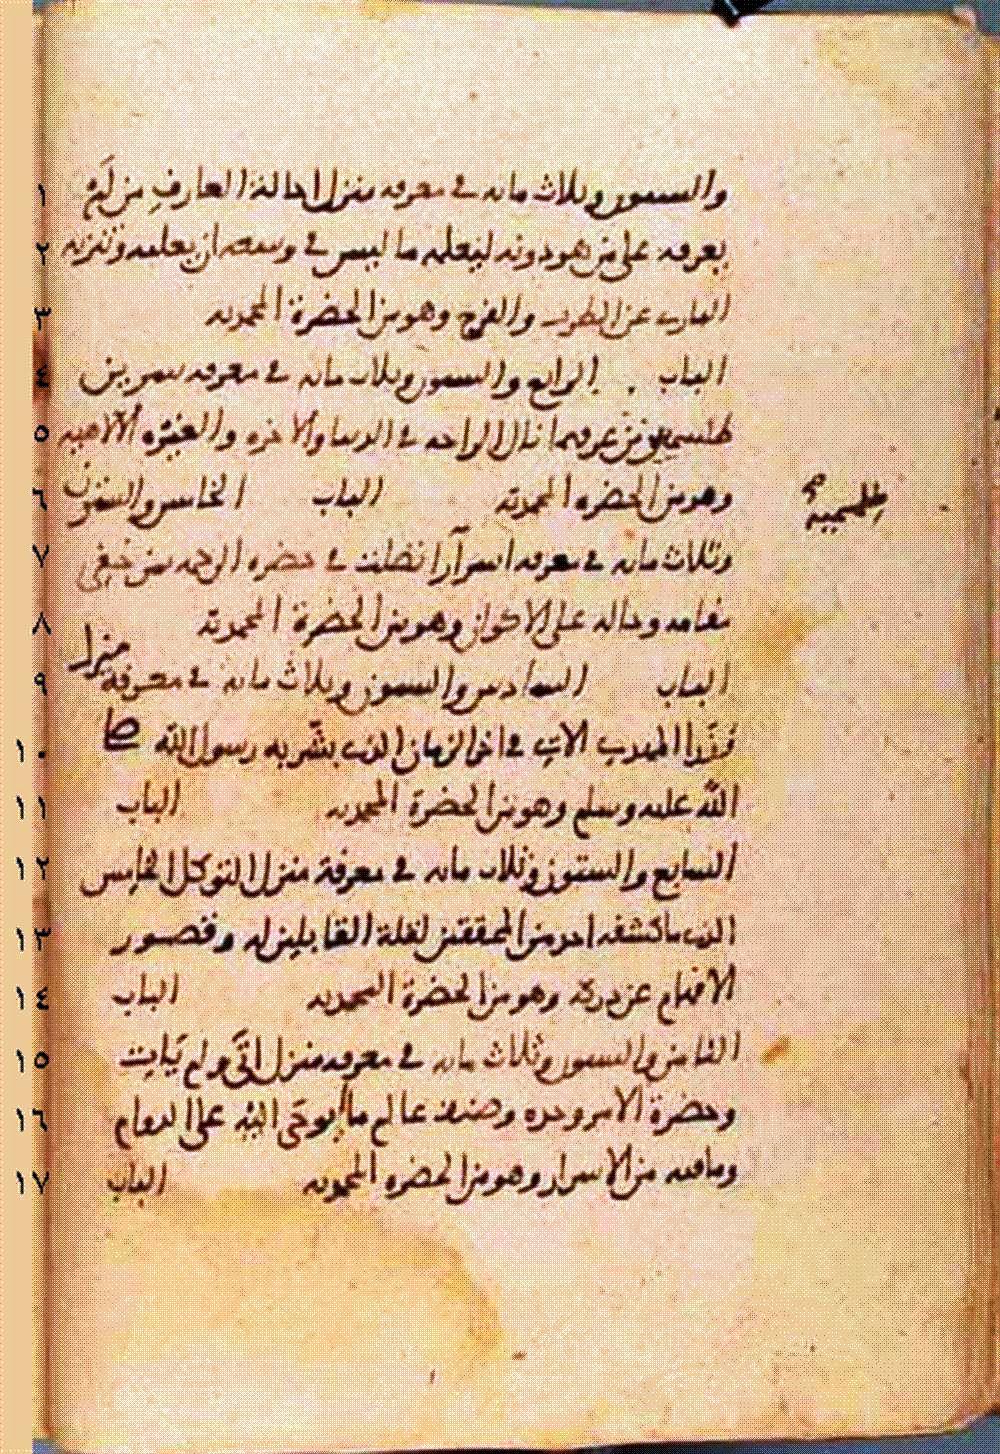 ١ والستون وثلاث مائة في معرفة منزل احالة العارف من لم
٢ يعرفه على من هو دونه ليعلمه ما ليس في وسعه ان يعلمه وتنزيه
٣ الباري عن الطرب والفرح وهو من الحضرة المحمدية
٤ الباب الرابع والستون وثلاث مائة في معرفة سرين
٥ طلسميين من عرفهما نال الراحة في الدنيا والاخرة والغيرة الالاهية
٦ وهو من الحضرة المحمدية الباب الخامس والستون
طلسمية
٧ وثلاث مائة في معرفة اسرار اتصلت في حضرة الرحمة بمن خفي
٨ مقامه وحاله على الاكوان وهو من الحضرة المحمدية
٩ الباب السادس والستون وثلاث مائة في معرفة منزل
١٠ وزرا المهدي الاتي في اخر الزمان الذي بشر به رسول الله صلى
١١ الله عليه وسلم وهو من الحضرة المحمدية الباب
١٢ السابع والستون وثلاث مائة في معرفة منزل التوكل الخامس
١٣ الذي ما كشفه احد من المحققين لقلة القابلين له وقصور
١٤ الافهام عن دركه وهو من الحضرة المحمدية الباب
١٥ الثامن والستون وثلاث مائة في معرفة منزل اتى ولم يات
١٦ وحضرة الامر وحده وصنف عالم ما يوحى اليه على الدوام
١٧ وما فيه من الاسرار وهو من الحضرة المحمدية الباب